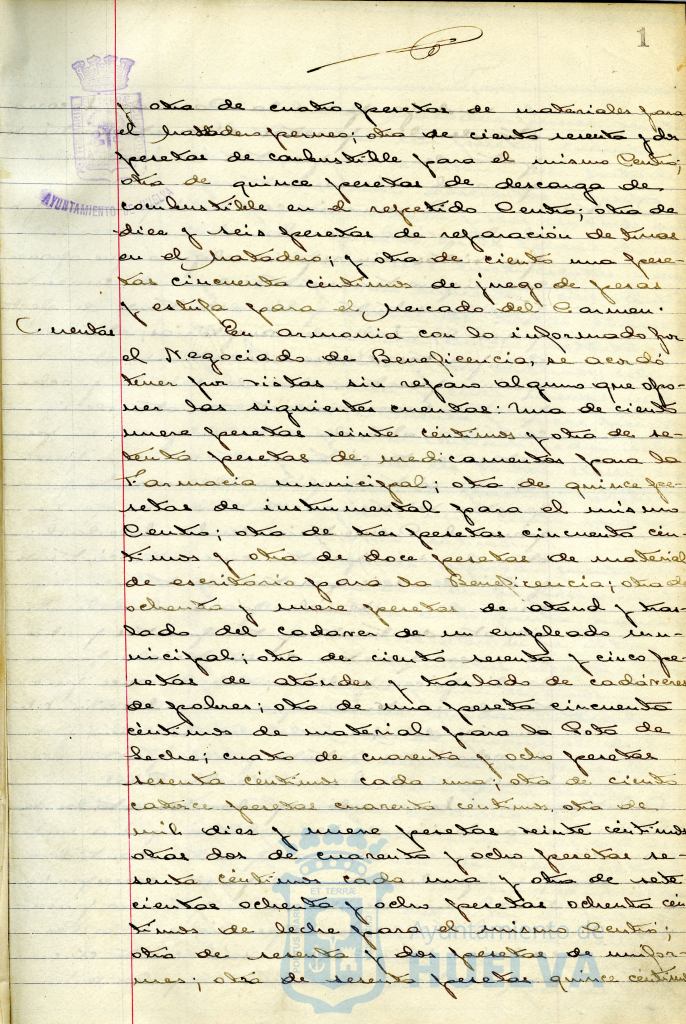 1
y otra de cuatro pesetas de materiales para
el Matadero perneo; otra de ciento sesenta y dos
pesetas de combustible para el mismo Centro;
otra de quince pesetas de descarga de
combustible en el repetido Centro; otra de
diez y seis pesetas de reparación de tinas
en el Matadero; y otra de ciento una pese-
tas cincuenta céntimos de juego de pesas
y estufa para el Mercado del Carmen.
Cuentas En armonia con lo informado por
el Negociado de Beneficencia, se acordó
tener por vistas sin reparo alguno que opo-
ner las siguientes cuentas: Una de ciento
nueve pesetas veinte céntimos y otra de se-
tenta pesetas de medicamentos para la
Farmacia municipal; otra de quince pe-
setas de instrumental para el mismo
Centro; otra de tres pesetas cincuenta cén-
timos y otra de doce pesetas de material
de escritorio para la Beneficencia; otra de
ochenta y nueve pesetas de ataud y tras-
lado del cadaver de un empleado mu-
nicipal; otra de ciento sesenta y cinco pe-
setas de ataudes y traslado de cadáveres
de pobres; otra de una peseta cincuenta
céntimos de material para la Gota de
Leche; cuatro de cuarenta y ocho pesetas
sesenta céntimos cada una; otra de ciento
catorce pesetas cuarenta céntimos, otra de
mil diez y nueve pesetas veinte céntimos
otras dos de cuarenta y ocho pesetas se-
senta céntimos cada una y otra de sete
cientas ochenta y ocho pesetas ochenta cén
timos de leche para el mismo Centro;
otra de sesenta y dos pesetas de unifor-
mes; otra de sesenta pesetas quince céntimos
AYUNTAMIENTO DE
Ayuntamiento de
HUELVA
PORTUS MARIS ET TERRÆ